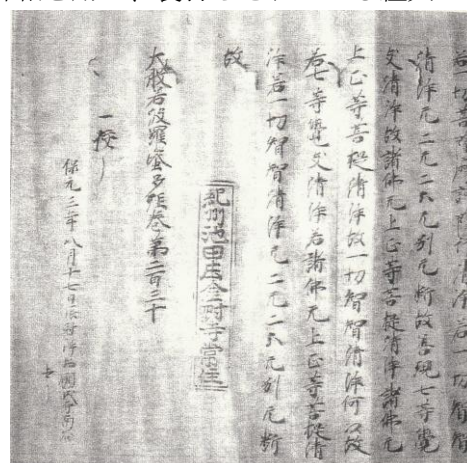 若一切菩薩摩訶薩行清淨若一切智智
清淨无二无二分无別无断故善現七等覺
支清淨故諸佛无上正等菩提清淨諸佛无
上正等菩提清淨故一切智智清淨何以故
若七等覺支清淨若諸佛无上正等菩提清
淨若一切智智清淨无二无二分无別无断
故
紀州池田庄 寺常住
大般若波羅蜜多經卷第二百三十
一挍
保元三年八月十七日